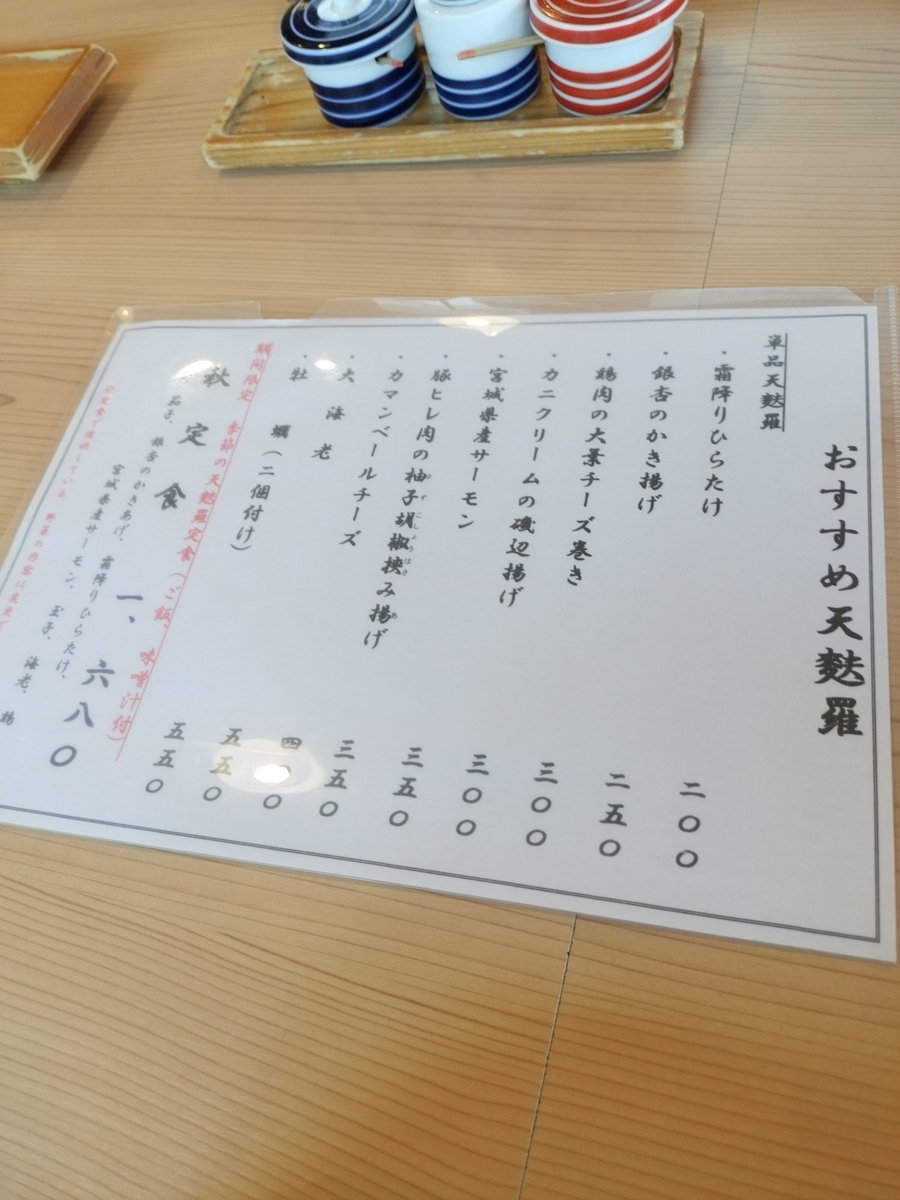 おすすめ天麩羅
単品天麩羅
・霜降りひらたけ 二〇〇
・銀杏のかき揚げ 二五〇
・鶏肉の大葉チーズ巻き 三〇〇
・カニクリームの磯辺揚げ 三〇〇
・宮城県産サーモン 三五〇
・豚ヒレ肉の柚子胡椒挟み揚げ 三五〇
・カマンベールチーズ
・大海老 五五〇
・牡蠣（二個付け） 五五〇
期間限定 季節の天麩羅定食（ご飯、味噌汁付）
秋定食 一、六八〇
茄子、銀杏のかきあげ、霜降りひらたけ、
宮城県産サーモン、玉子、海老、鶏
定食で提供している、野菜の内容は変更